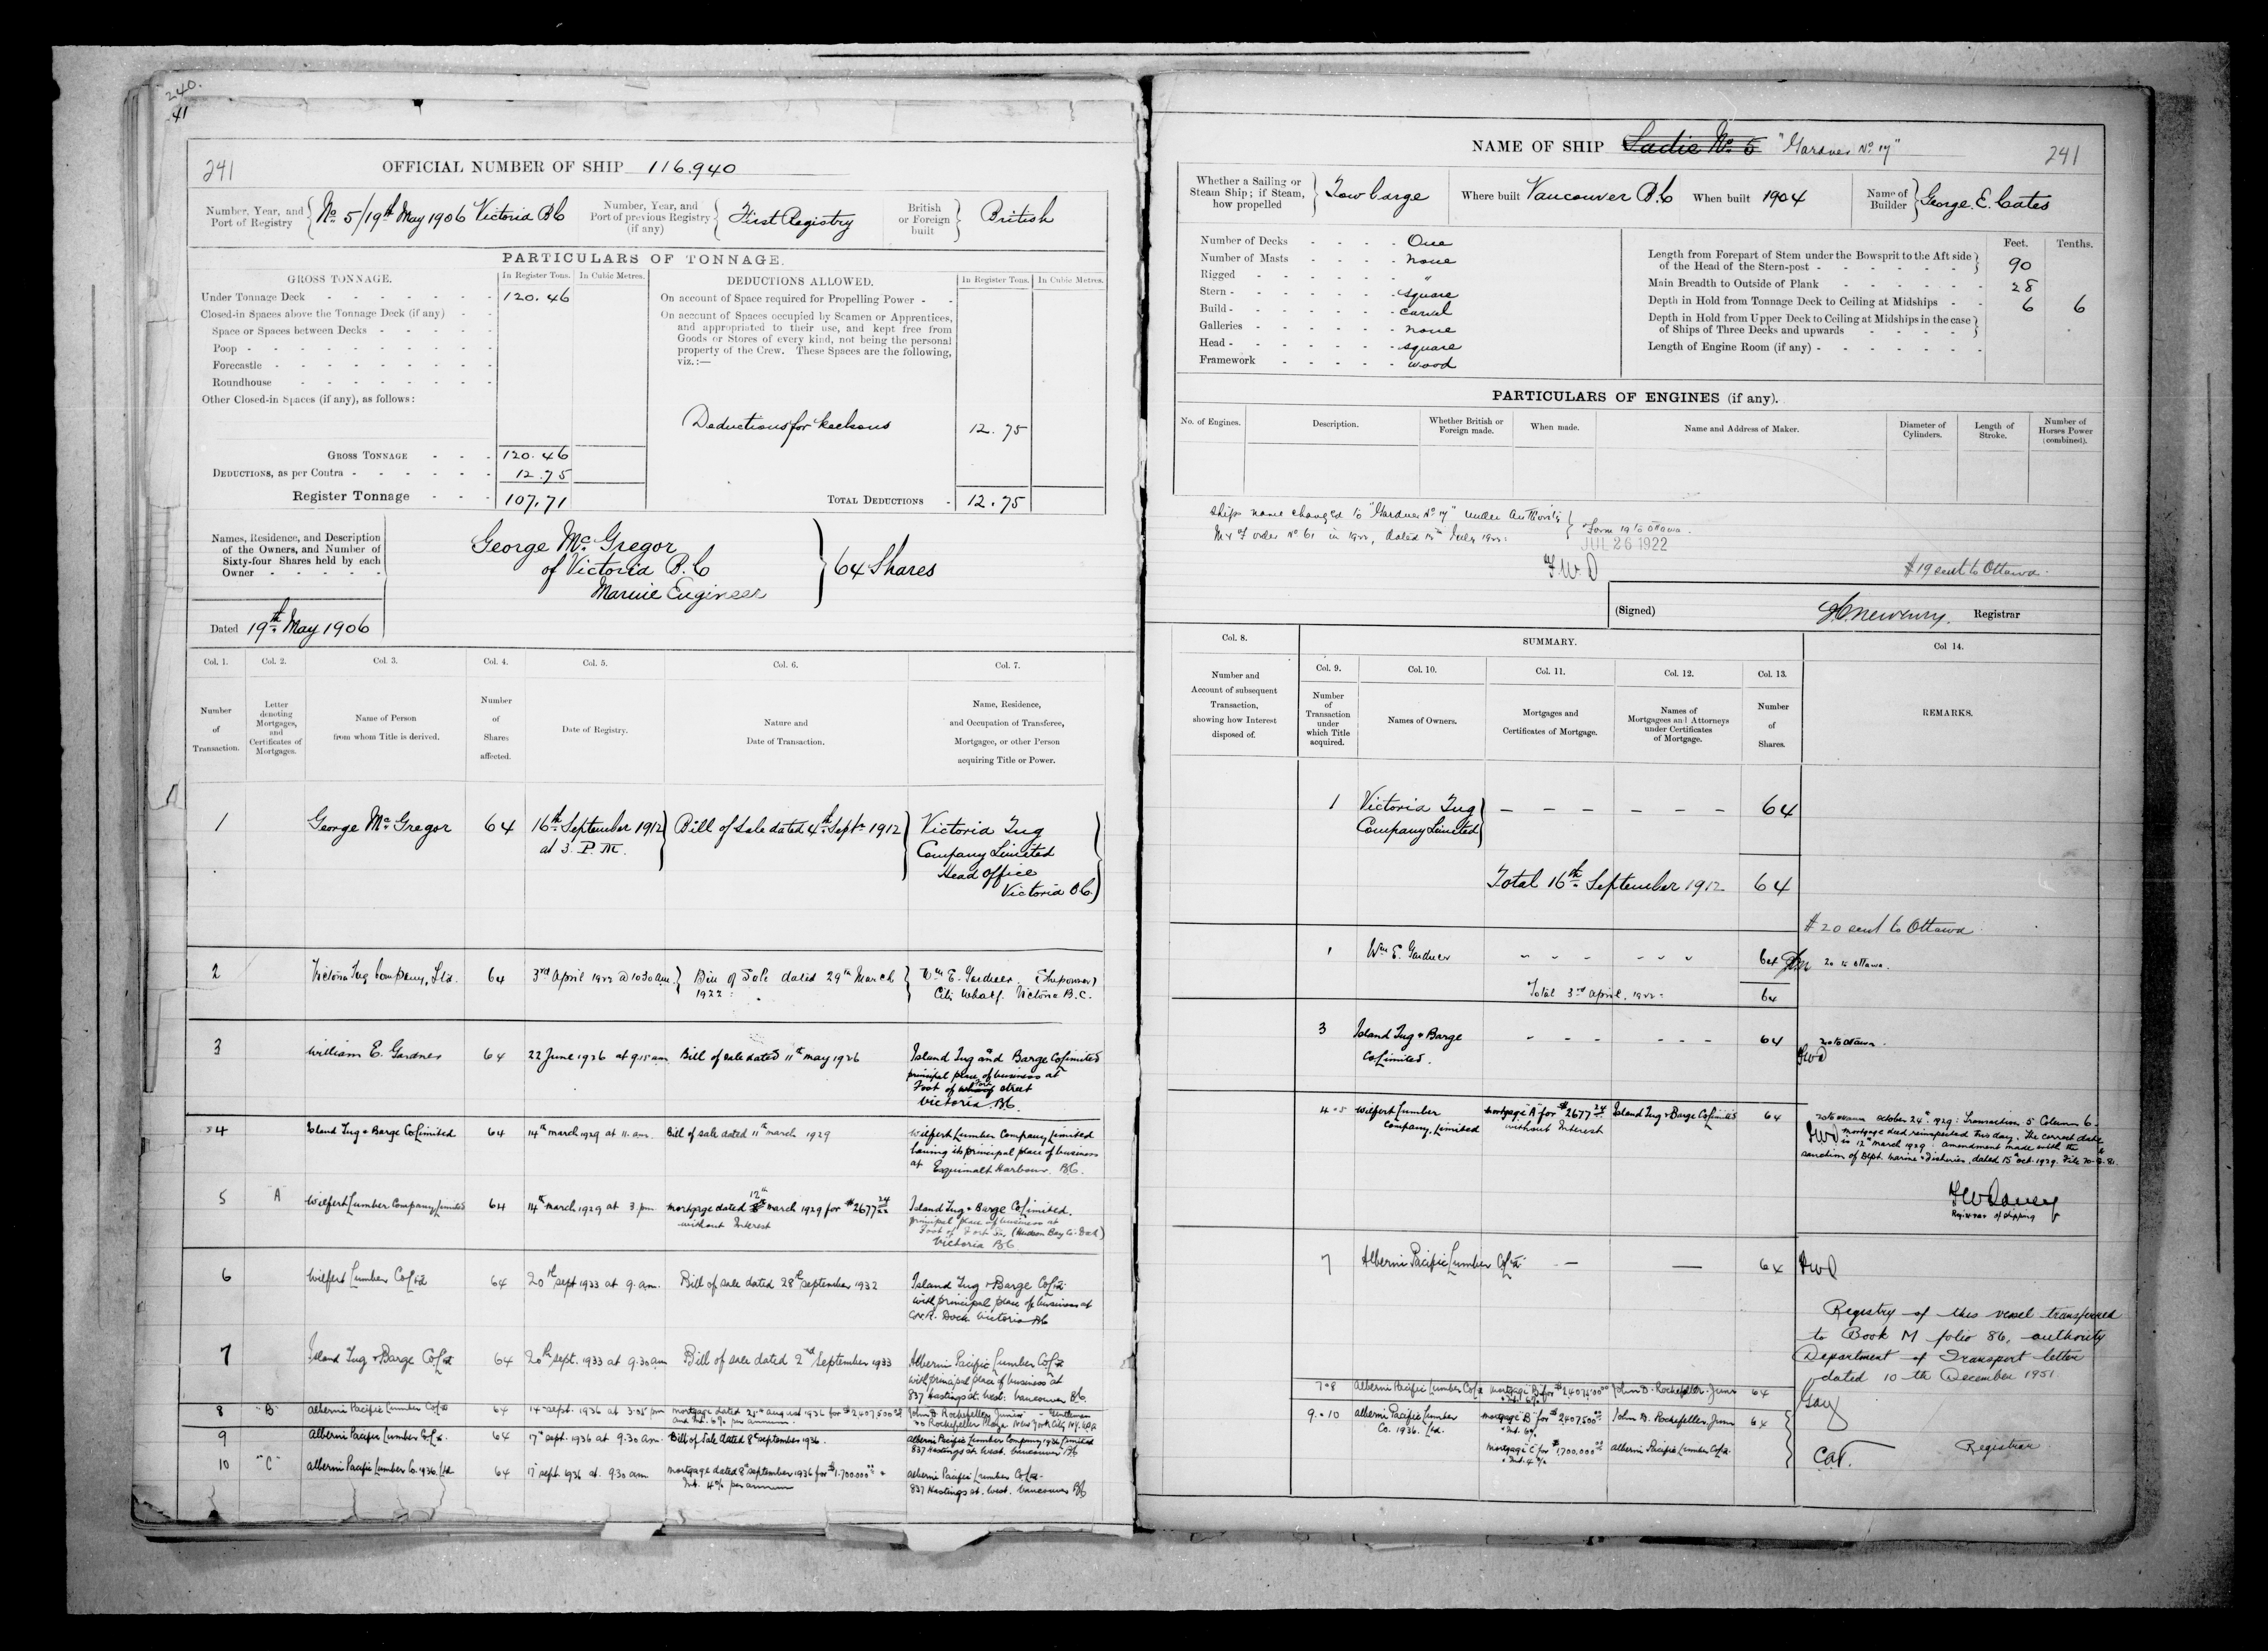 240.
41
241
OFFICIAL NUMBER OF SHIP 116.940
Number, Year, and Port of Registry
No 5/19th May 1906 Victoria B C
Number, Year, and Port of previous Registry (if any)
First Registry
British or Foreign built
British
PARTICULARS OF TONNAGE.
GROSS TONNAGE.
In Register Tons.
In Cubic Metres.
Under Tonnage Deck 120.46
Closed-in Spaces above the Tonnage Deck (if any)
Space or Spaces between Decks
Poop
Forecastle
Roundhouse
Other Closed-in Spaces (if any), as follows:
GROSS TONNAGE 120.46
DEDUCTIONS, as per Contra 12.75
Register Tonnage 107.71
DEDUCTIONS ALLOWED.
In Register Tons.
In Cubic Metres.
On account of Space required for Propelling Power
On account of Spaces occupied by Seamen or Apprentices,
and appropriated to their use, and kept free from
Goods or Stores of every kind, not being the personal
property of the Crew. These Spaces are the following,
viz.:—
Deductions for keelsons 12.75
TOTAL DEDUCTIONS 12.75
Names, Residence, and Description
of the Owners, and Number of
Sixty-four Shares held by each
Owner
George McGregor
of Victoria B.C
Marine Engineer
64 Shares
Dated 19th May 1906
Col. 1. Col. 2. Col. 3. Col. 4. Col. 5. Col. 6. Col. 7.
Number of Transaction.
Letter denoting Mortgages, and Certificates of Mortgages.
Name of Person from whom Title is derived.
Number of Shares affected.
Date of Registry.
Nature and Date of Transaction.
Name, Residence, and Occupation of Transferee, Mortgagee, or other Person acquiring Title or Power.
1 George McGregor 64 16th September 1912 at 3. P.M. Bill of Sale dated 4th Septr 1912 Victoria Tug
Company Limited
Head Office
Victoria B.C.
2 Victoria Tug Company, Ltd. 64 3rd April 1922 @ 10.30 a.m. Bill of Sale dated 29th March
1922
Wm E. Gardner (Shipowner)
City Wharf. Victoria B.C.
3 William E. Gardner 64 22 June 1926 at 9.15 am Bill of sale dated 11th May 1926 Island Tug and Barge Co Limited
principal place of business at
Foot of Fort street
Victoria B.C.
4 Island Tug & Barge Co Limited 64 14th March 1929 at 11. a.m. Bill of sale dated 11th March 1929 Wilfert Lumber Company Limited
having its principal place of business
at Esquimalt Harbour. B.C.
5 "A" Wilfert Lumber Company Limited 64 14th March 1929 at 3 pm mortgage dated 12th march 1929 for $2677 24/xx
without Interest
Island Tug & Barge Co Limited.
principal place of business at
Foot of Fort St, (Hudson Bay Co. Dock)
Victoria B.C
6 Wilfert Lumber Co Ltd 64 20th sept 1933 at 9. a.m. Bill of sale dated 28th september 1932 Island Tug & Barge Co Ltd.
with principal place of business at
C.N.R. Dock Victoria B.C
7 Island Tug & Barge Co Ltd 64 20th sept. 1933 at 9.30 am Bill of sale dated 2nd September 1933 Alberni Pacific Lumber Co Ltd
with principal place of business at
837 Hastings st. West. Vancouver B.C.
8 "B" Alberni Pacific Lumber Co Ltd 64 14th sept. 1936 at 3.05 pm mortgage dated 25th august 1936 for $2407,500 00
and Int. 6% per annum.
John D. Rockefeller Junior - Gentleman
Rockefeller Plaza New York City N.Y. U.S.A
9 Alberni Pacific Lumber Co Ltd. 64 17th sept. 1936 at 9.30 am. Bill of Sale dated 8th september 1936. Alberni Pacific Lumber Company 1936 Limited
837 Hastings st. West. Vancouver B.C
10 "C" Alberni Pacific Lumber Co. 1936. Ltd 64 17 sept 1936 at 930 am mortgage dated 8th september 1936 for $1,700.000 00
Int. 4% per annum
Alberni Pacific Lumber Co Ltd.
837 Hastings st. West. Vancouver B.C
NAME OF SHIP Sadie No 5 "Gardner No 17"
241
Whether a Sailing or Steam Ship; if Steam, how propelled
Tow barge
Where built Vancouver B.C
When built 1904
Name of Builder George. E. Cates
Number of Decks One
Number of Masts none
Rigged "
Stern square
Build carvel
Galleries none
Head square
Framework wood
Feet. Tenths.
Length from Forepart of Stem under the Bowsprit to the Aft side
of the Head of the Stern-post 90
Main Breadth to Outside of Plank 28
Depth in Hold from Tonnage Deck to Ceiling at Midships 6 6
Depth in Hold from Upper Deck to Ceiling at Midships in the case
of Ships of Three Decks and upwards
Length of Engine Room (if any)
PARTICULARS OF ENGINES (if any).
No. of Engines.
Description.
Whether British or Foreign made.
When made.
Name and Address of Maker.
Diameter of Cylinders.
Length of Stroke.
Number of Horses Power (combined).
Ships name changed to "Gardner No 17" under Authority
M & F order No 61 in 1922, dated 15th July 1922.
Form 19 to Ottawa.
JUL 26 1922
FWD
# 19 sent to Ottawa.
(Signed) Registrar
Col. 8.
Number and Account of subsequent Transaction, showing how Interest disposed of.
SUMMARY.
Col. 9. Col. 10. Col. 11. Col. 12. Col. 13. Col 14.
Number of Transaction under which Title acquired.
Names of Owners.
Mortgages and Certificates of Mortgage.
Names of Mortgagees and Attorneys under Certificates of Mortgage.
Number of Shares.
REMARKS.
1 Victoria Tug
Company Limited
64
Total 16th September 1912 64
# 20 sent to Ottawa
1 Wm E. Gardner 64 20 to Ottawa.
Total 3rd April, 1922 64
3 Island Tug & Barge
Co Limited.
64 20 to Ottawa.
FWD
4 - 5 Wilfert Lumber
Company, Limited
mortgage "A" for $2677 24
without Interest
Island Tug & Barge Co Limited 64
20 to Ottawa October 24th 1929: Transaction 5 Column 6
FWD mortgage deed reinspected this day. The correct date
is 12th March 1929. amendment made with the
sanction of Dept. Marine & Fisheries, dated 15th oct. 1929.
Registrar of shipping
7 Alberni Pacific Lumber Co Ltd — — 64 FWD
Registry of this vessel transferred
to Book M folio 86, authority
Department of Transport letter
dated 10 th December 1951.
Registrar
7-8 Alberni Pacific Lumber Co Ltd mortgage B for John D. Rockefeller. Junr 64
Int. 6%
9. - 10 Alberni Pacific Lumber
Co. 1936. Ltd.
mortgage "B" for $2407,500 00
Int. 6%
John D. Rockefeller, Junr 64
mortgage "C" for $1,700,000 00
Int. 4%
Alberni Pacific Lumber Co Ltd.